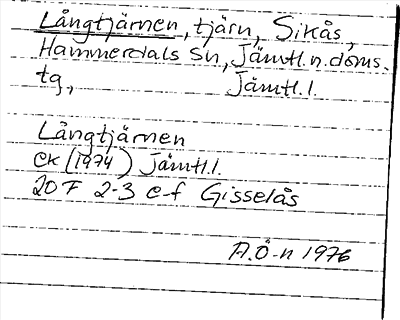 Långtjärnen, tjärn, Sikås,
Hammerdals Sn, Jämtl. n. doms.
tg, Jämtl. l.
Långtjärnen
EK (1974) Jämtl. l.
20 F 2-3 e-f Gisselås
A.Ö-n 1976